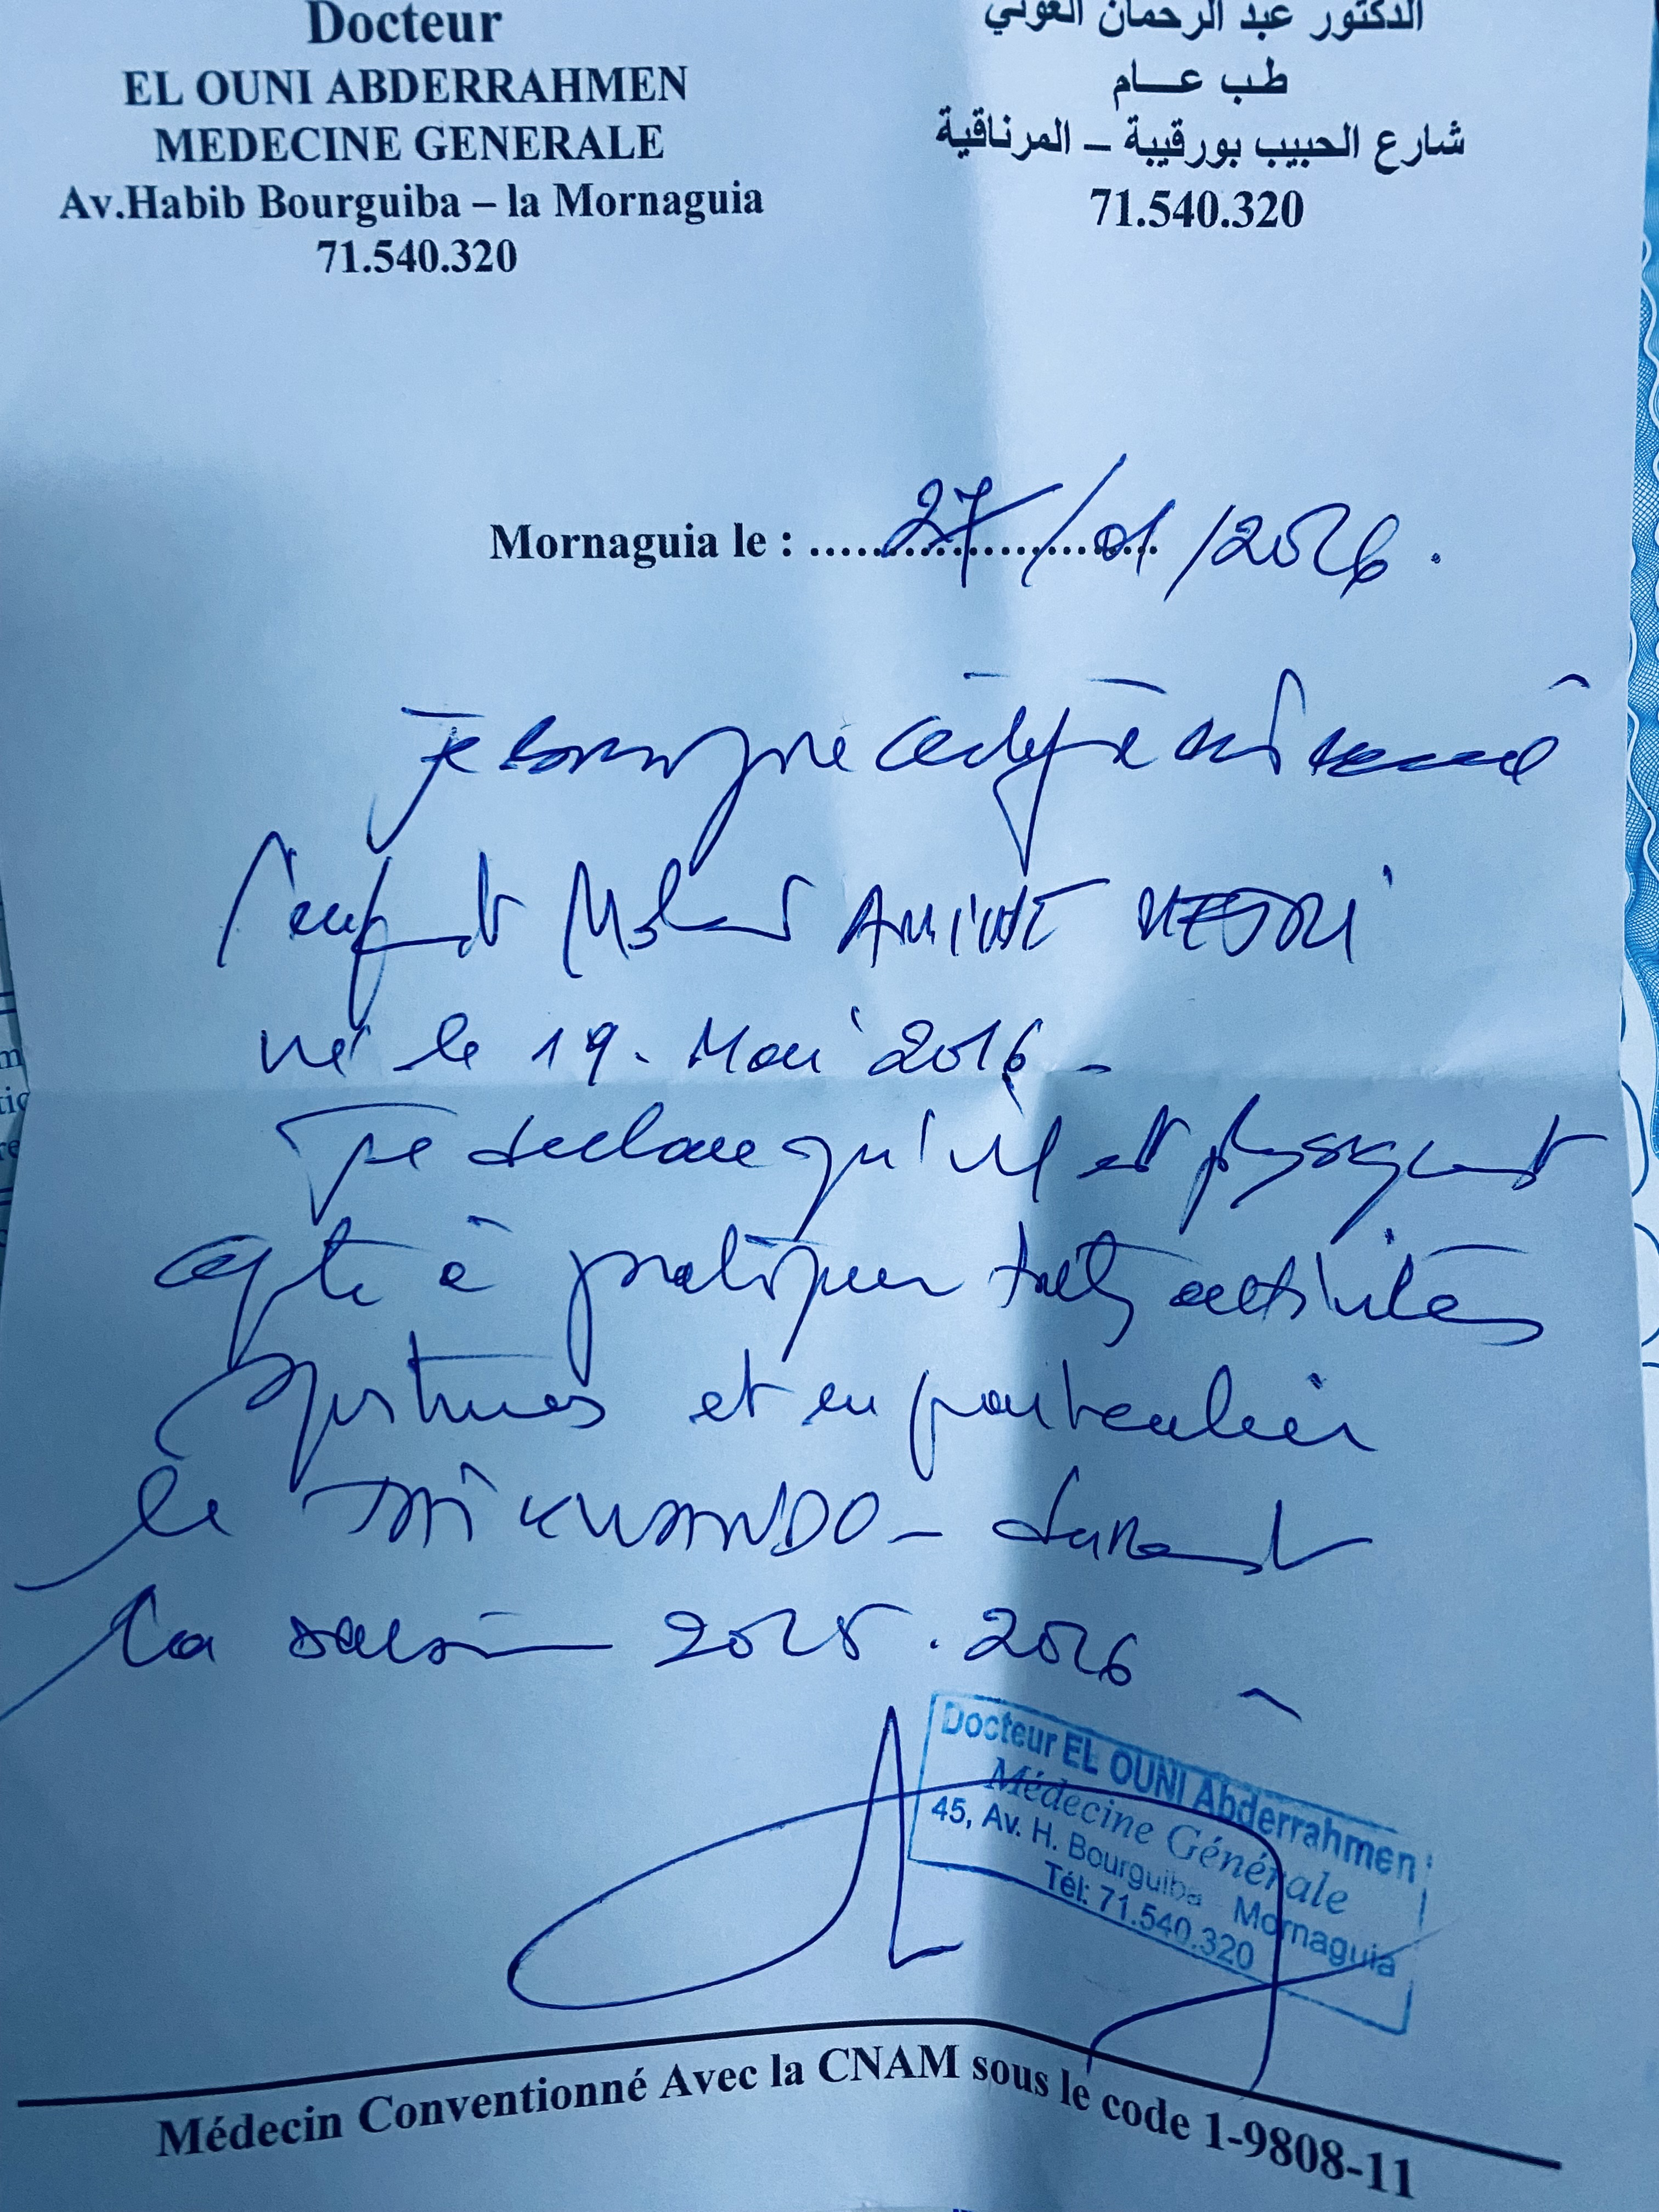 Docteur
EL OUNI ABDERRAHMEN
MEDECINE GENERALE
Av.Habib Bourguiba – la Mornaguia
71.540.320
الدكتور عبد الرحمان العوني
طب عـــام
شارع الحبيب بورقيبة – المرناقية
71.540.320
Mornaguia le : 27/01/2026.
Je soussigné certifie avoir examiné
l'enfant Mohamed AMINE
né le 19. Mai 2016 -
Je declare qu'il est physiquement
apte à pratiquer toutes activités
sportives et en particulier
le TAÏKWANDO - durant
la saison 2025.2026
Docteur EL OUNI Abderrahmen
Médecine Générale
45, Av. H. Bourguiba Mornaguia
Tél: 71.540.320
Médecin Conventionné Avec la CNAM sous le code 1-9808-11